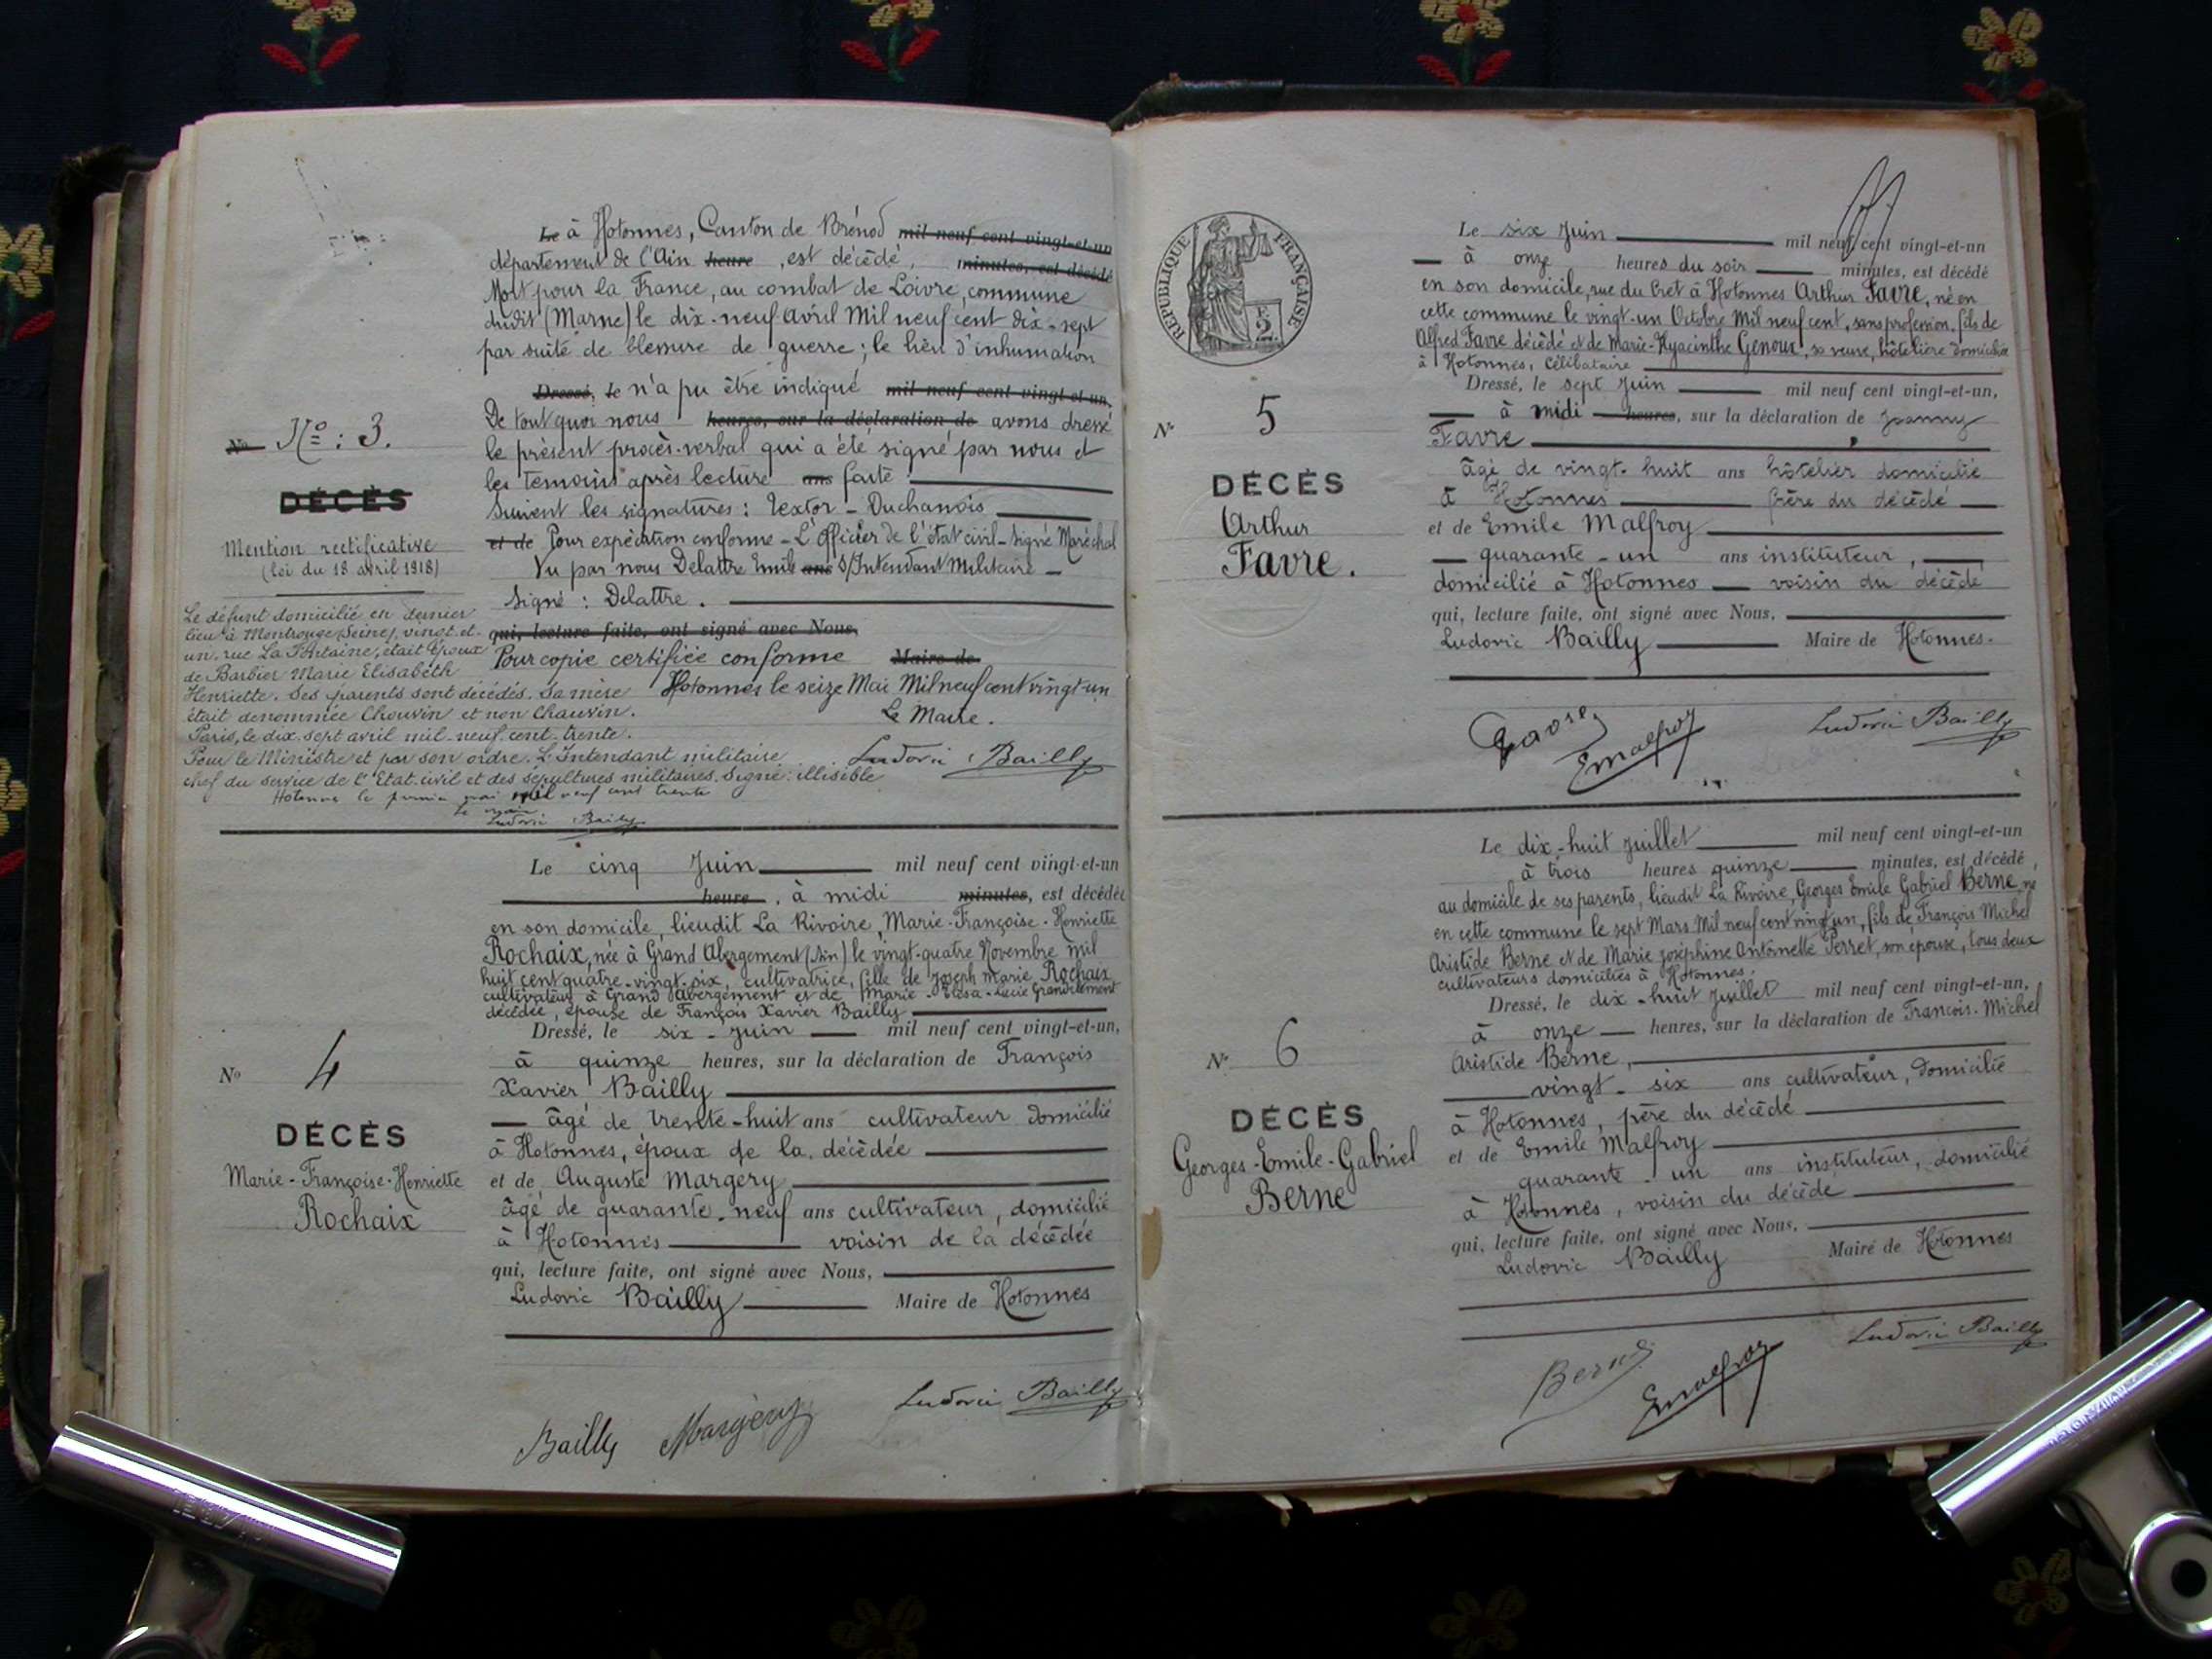 Le à Hotonnes, Canton de Brénod mil neuf cent vingt-et-un
département de l'Ain heure, est décédé, minutes, est décédé
Mort pour la France, au combat de Loivre, commune
dudit (Marne) le dix-neuf Avril Mil neuf cent dix-sept
par suite de blessure de guerre; le lieu d'inhumation
Dressé, le n'a pu être indiqué mil neuf cent vingt-et-un,
De tout quoi nous heures, sur la déclaration de avons dressé
le présent procès-verbal qui a été signé par nous et
les témoins après lecture ans faite
Suivent les signatures: Textor - Duchanois
et de Pour expédition conforme - L'Officier de l'état civil - Signé Maréchal
Vu par nous Delattre Emile ans S/Intendant Militaire -
Signé: Delattre.
qui, lecture faite, ont signé avec Nous,
Pour copie certifiée conforme Maire de
Hotonnes le seize Mai Mil neuf cent vingt-un
Le Maire.
Ludovic Bailly
No N°: 3.
DÉCÈS
Mention rectificative
(loi du 18 avril 1918)
Le défunt domicilié en dernier
lieu à Montrouge (Seine), vingt-et-
un, rue La Fontaine, était époux
de Barbier Marie Elisabeth
Henriette. Ses parents sont décédés. Sa mère
était dénommée Chouvin et non Chauvin.
Paris, le dix-sept avril mil-neuf-cent-trente.
Pour le Ministre et par son ordre. L'Intendant militaire
chef du service de l'Etat-civil et des sépultures militaires. Signé: illisible
Hotonnes le premier mai mil neuf cent trente
Le maire
Ludovic Bailly
Le cinq Juin mil neuf cent vingt-et-un
heure, à midi minutes, est décédée
en son domicile, lieudit La Rivoire, Marie-Françoise-Henriette
Rochaix, née à Grand Abergement (Ain) le vingt-quatre Novembre mil
huit cent quatre-vingt-six, cultivatrice, fille de Joseph Marie Rochaix
cultivateur à Grand Abergement et de Marie Lucie
décédée, épouse de François Xavier Bailly
Dressé, le six-Juin mil neuf cent vingt-et-un,
à quinze heures, sur la déclaration de François
Xavier Bailly
âgé de trente-huit ans cultivateur domicilié
à Hotonnes, époux de la décédée
et de Auguste Margery
âgé de quarante-neuf ans cultivateur, domicilié
à Hotonnes voisin de la décédée
qui, lecture faite, ont signé avec Nous,
Ludovic Bailly Maire de Hotonnes
No 4
DÉCÈS
Marie-Françoise-Henriette
Rochaix
Bailly Margery Ludovic Bailly
RÉPUBLIQUE FRANÇAISE
2
Le six Juin mil neuf cent vingt-et-un
à onze heures du soir minutes, est décédé
en son domicile, rue du Cret à Hotonnes Arthur Favre, né en
cette commune le vingt-un Octobre Mil neuf cent, sans profession, fils de
Alfred Favre décédé et de Marie-Hyacinthe Genoux, sa veuve, hôtelière domiciliée
à Hotonnes, Célibataire
Dressé, le sept Juin mil neuf cent vingt-et-un,
à midi heures, sur la déclaration de Joanny
Favre,
âgé de vingt-huit ans hôtelier domicilié
à Hotonnes frère du décédé
et de Emile Malfroy
quarante-un ans instituteur,
domicilié à Hotonnes voisin du décédé
qui, lecture faite, ont signé avec Nous,
Ludovic Bailly Maire de Hotonnes.
No 5
DÉCÈS
Arthur
Favre.
EMalfroy Ludovic Bailly
Le dix-huit Juillet mil neuf cent vingt-et-un
à trois heures quinze minutes, est décédé,
au domicile de ses parents, lieudit La Rivoire, Georges Emile Gabriel Berne, né
en cette commune le sept Mars Mil neuf cent vingt-un, fils de François Michel
Aristide Berne et de Marie Joséphine Antoinette Perret, son épouse, tous deux
cultivateurs domiciliés à Hotonnes.
Dressé, le dix-huit Juillet mil neuf cent vingt-et-un,
à onze heures, sur la déclaration de François-Michel
Aristide Berne,
vingt-six ans cultivateur, domicilié
à Hotonnes, père du décédé
et de Emile Malfroy
quarante-un ans instituteur, domicilié
à Hotonnes, voisin du décédé
qui, lecture faite, ont signé avec Nous,
Ludovic Bailly Maire de Hotonnes
No 6
DÉCÈS
Georges-Emile-Gabriel
Berne
Berne EMalfroy Ludovic Bailly